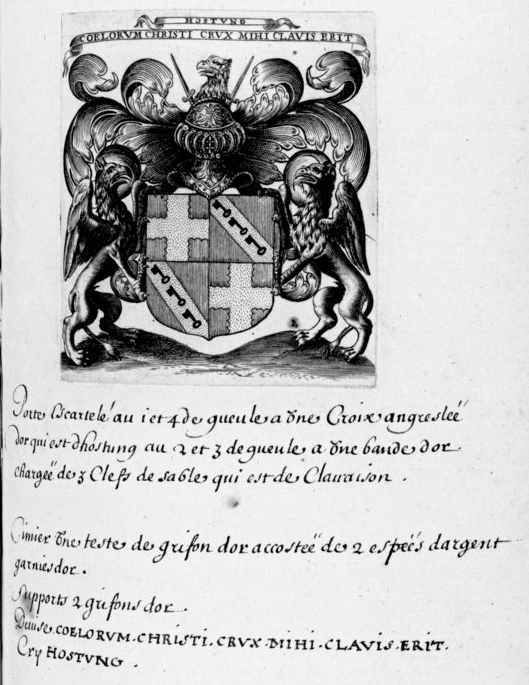 HOSTVNG
COELORVM CHRISTI CRVX MIHI CLAVIS ERIT
Porte Escartelé au 1 et 4 de gueule a vne Croix angresleé
dor qui est dhostung au 2 et 3 de gueule a vne bande dor
chargeë de 3 Clefs de sable qui est de Clauaison .
Cimier vne teste de grifon dor accosteë de 2 espeés dargent
garnies dor .
Supports 2 grifons dor .
Deuise COELORVM . CHRISTI . CRVX . MIHI . CLAVIS . ERIT .
Cry HOSTVNG .